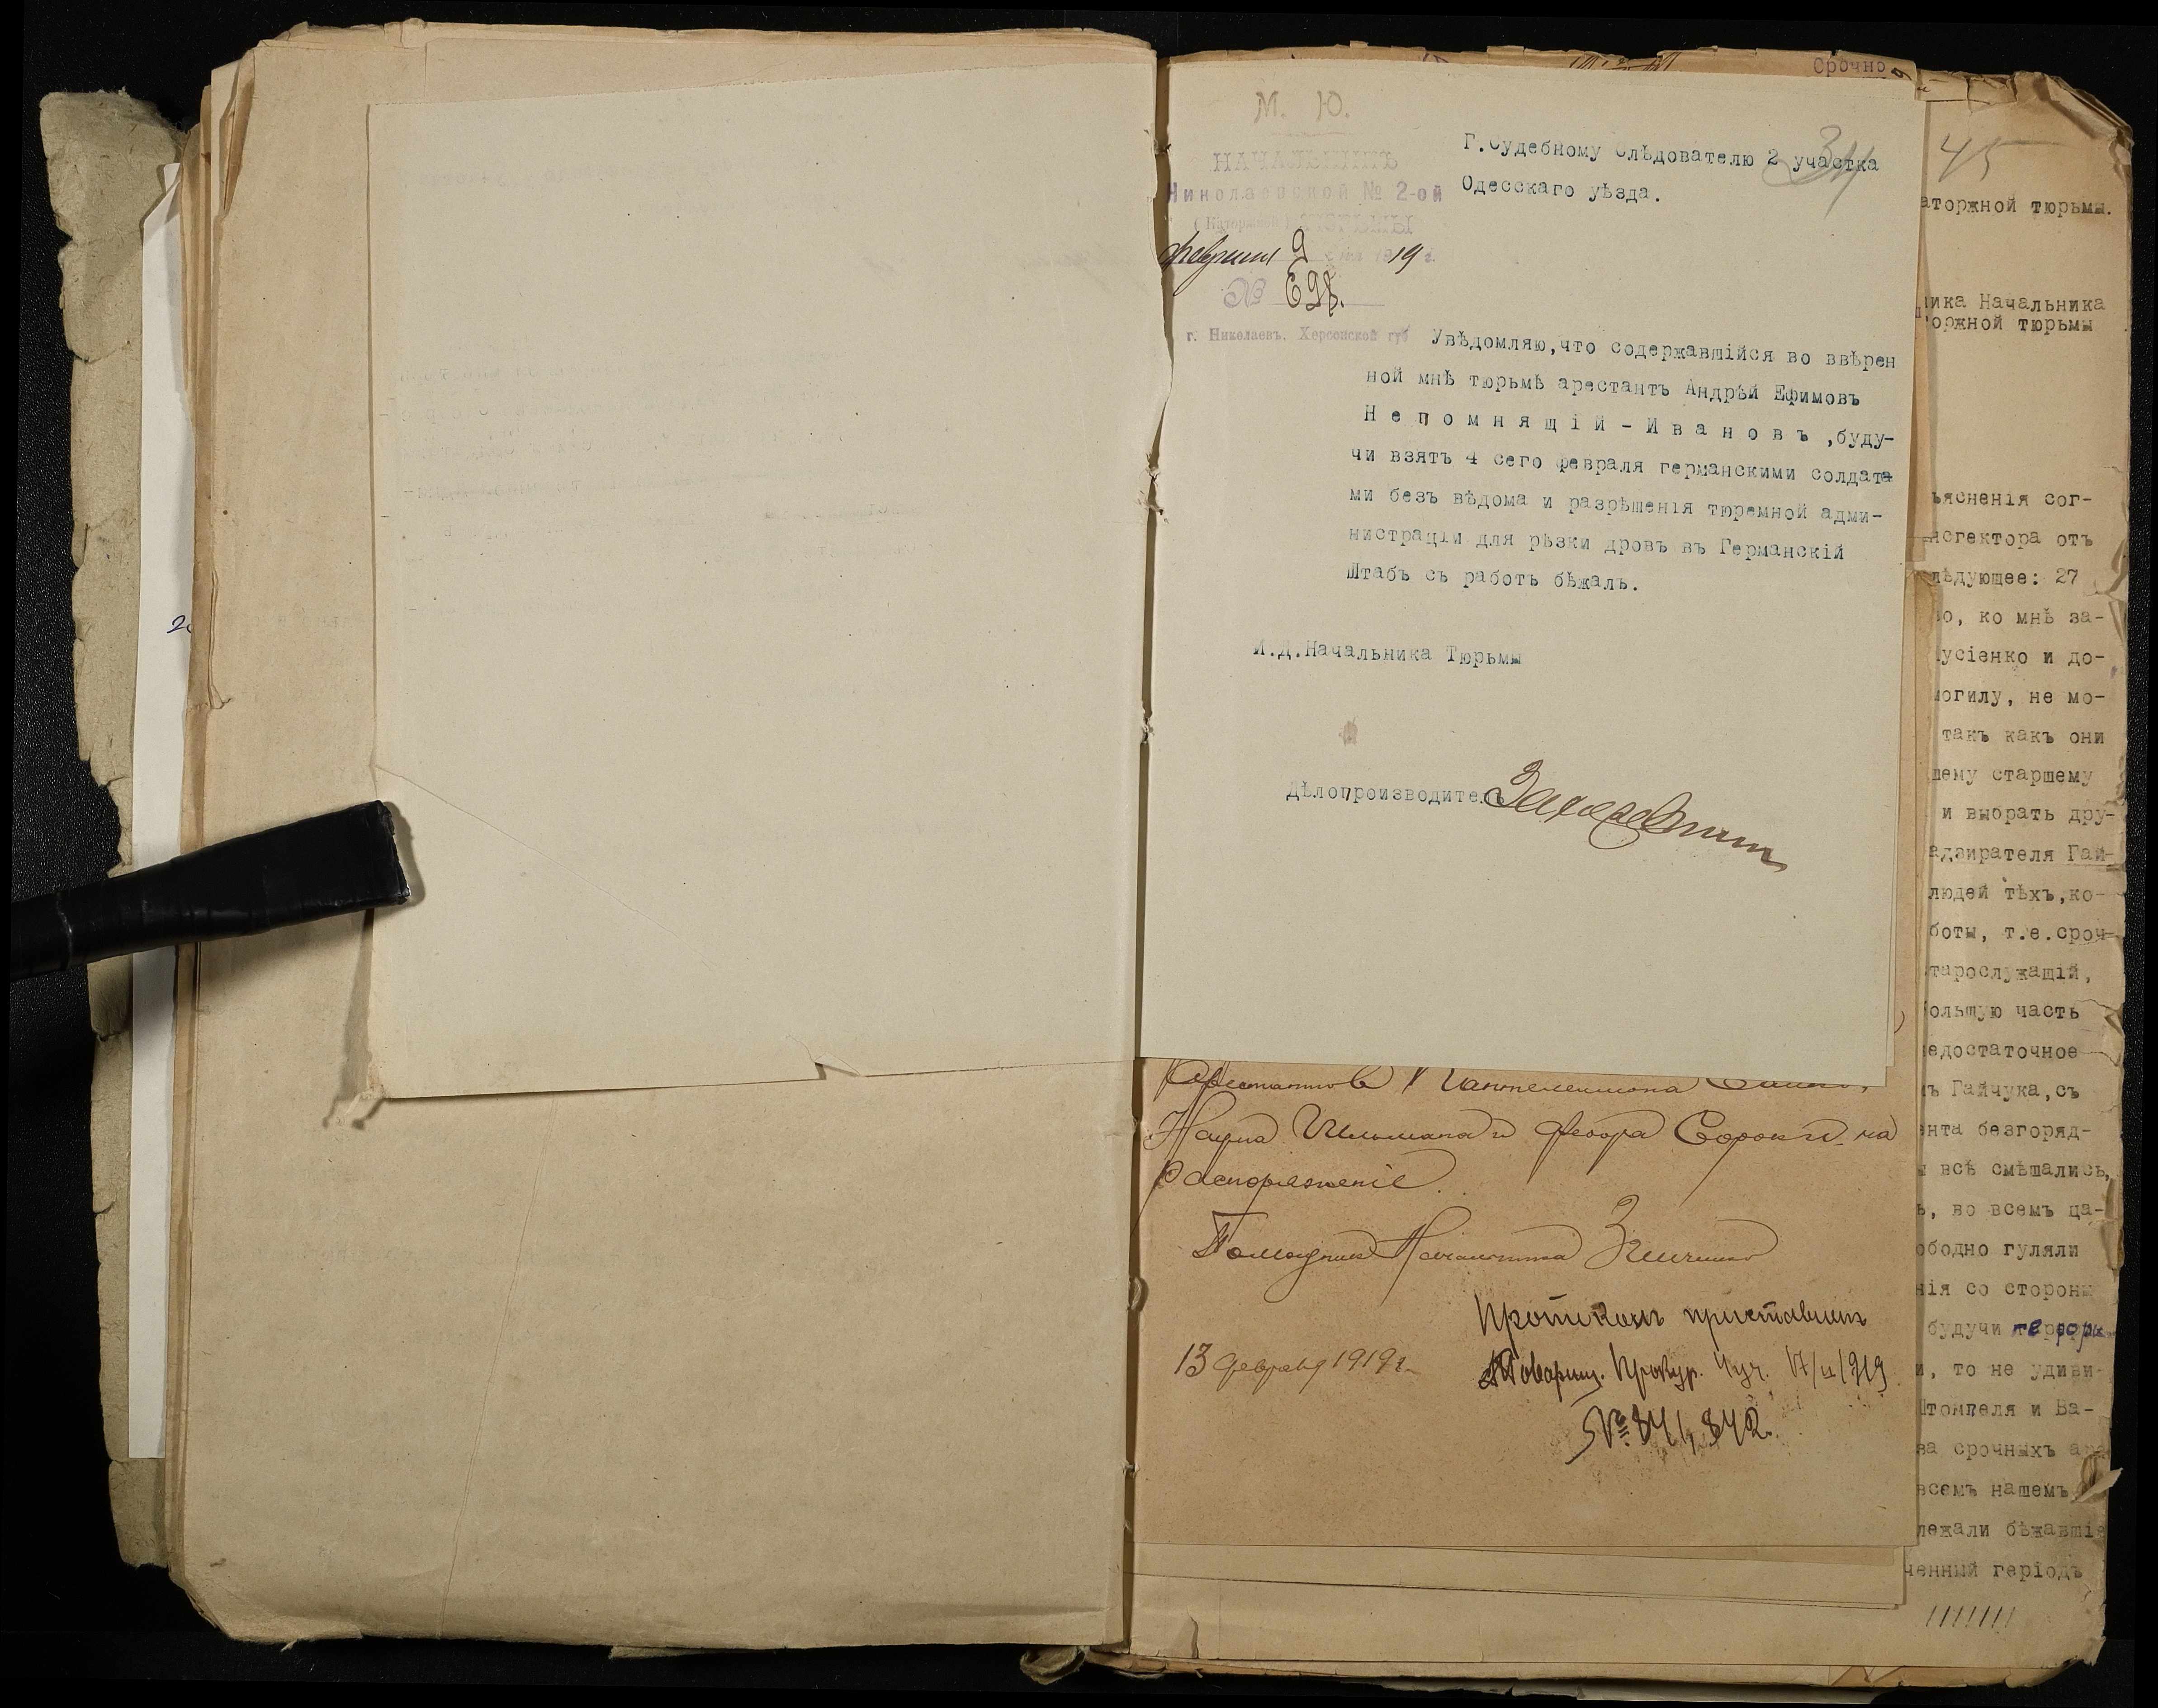 Срочно
М. Ю.
НАЧАЛЬНИКЪ
Николаевской № 2-ой
(Каторжной) ТЮРЬМЫ
февраля 9 дня 1919 г.
№ 698.
г. Николаевъ, Херсонской губ
34
Г.Судебному Слѣдователю 2 участка
Одесскаго уѣзда.
Увѣдомляю,что содержавшійся во ввѣрен
ной мнѣ тюрьмѣ арестантъ Андрѣй Ефимовъ
Н е п о м н я щ і й - И в а н о в ъ ,буду-
чи взятъ 4 сего февраля германскими солдата
ми безъ вѣдома и разрѣшенія тюремной адми-
нистраціи для рѣзки дровъ въ Германскій
Штабъ съ работъ бѣжалъ.
И.Д.Начальника Тюрьмы
Дѣлопроизводитель
Арестантовъ Пантелеимона
Наума и Федора Сороки на
распоряженіе.
Помощник Начальника Зинченко
13 февраля 1919 г.
Протокол
Товарищ. Прокур. 4 уч. 17/II 1919
№ 841, 842.
45
аторжной тюрьмы.
ника Начальника
торжной тюрьмы
ъясненія сог-
нсгектора отъ
лѣдующее: 27
во, ко мнѣ за-
усіенко и до-
могилу, не мо-
такъ какъ они
шему старшему
и выбрать дру-
адзирателя Гай-
людей тѣхъ,ко-
боты, т.е.сроч-
тарослужащій,
ольшую часть
недостаточное
ъ Гайчука,съ
нта безгоряд-
ы всѣ смѣшались,
ь, во всемъ ца-
ободно гуляли
нія со стороны
будучи
и, то не удиви-
Штомпеля и Ва-
ва срочныхъ
всемъ нашемъ
лежали бѣжавшіе
ченный геріодъ
///////